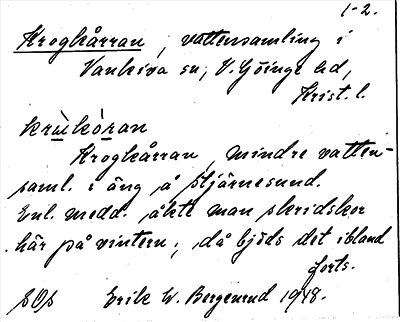 1-2.
Krogkärran, vattensamling i
Vankiva sn, V. Göinge hd,
Krist. l.
krùkȯ́ran
Krogkärran, mindre vatten-
saml. i äng å Stjärnesund.
Enl. medd. åkte man skridskor
här på vintern; då bjöds det ibland
forts.
SOS Erik W. Bergenrud 1948.